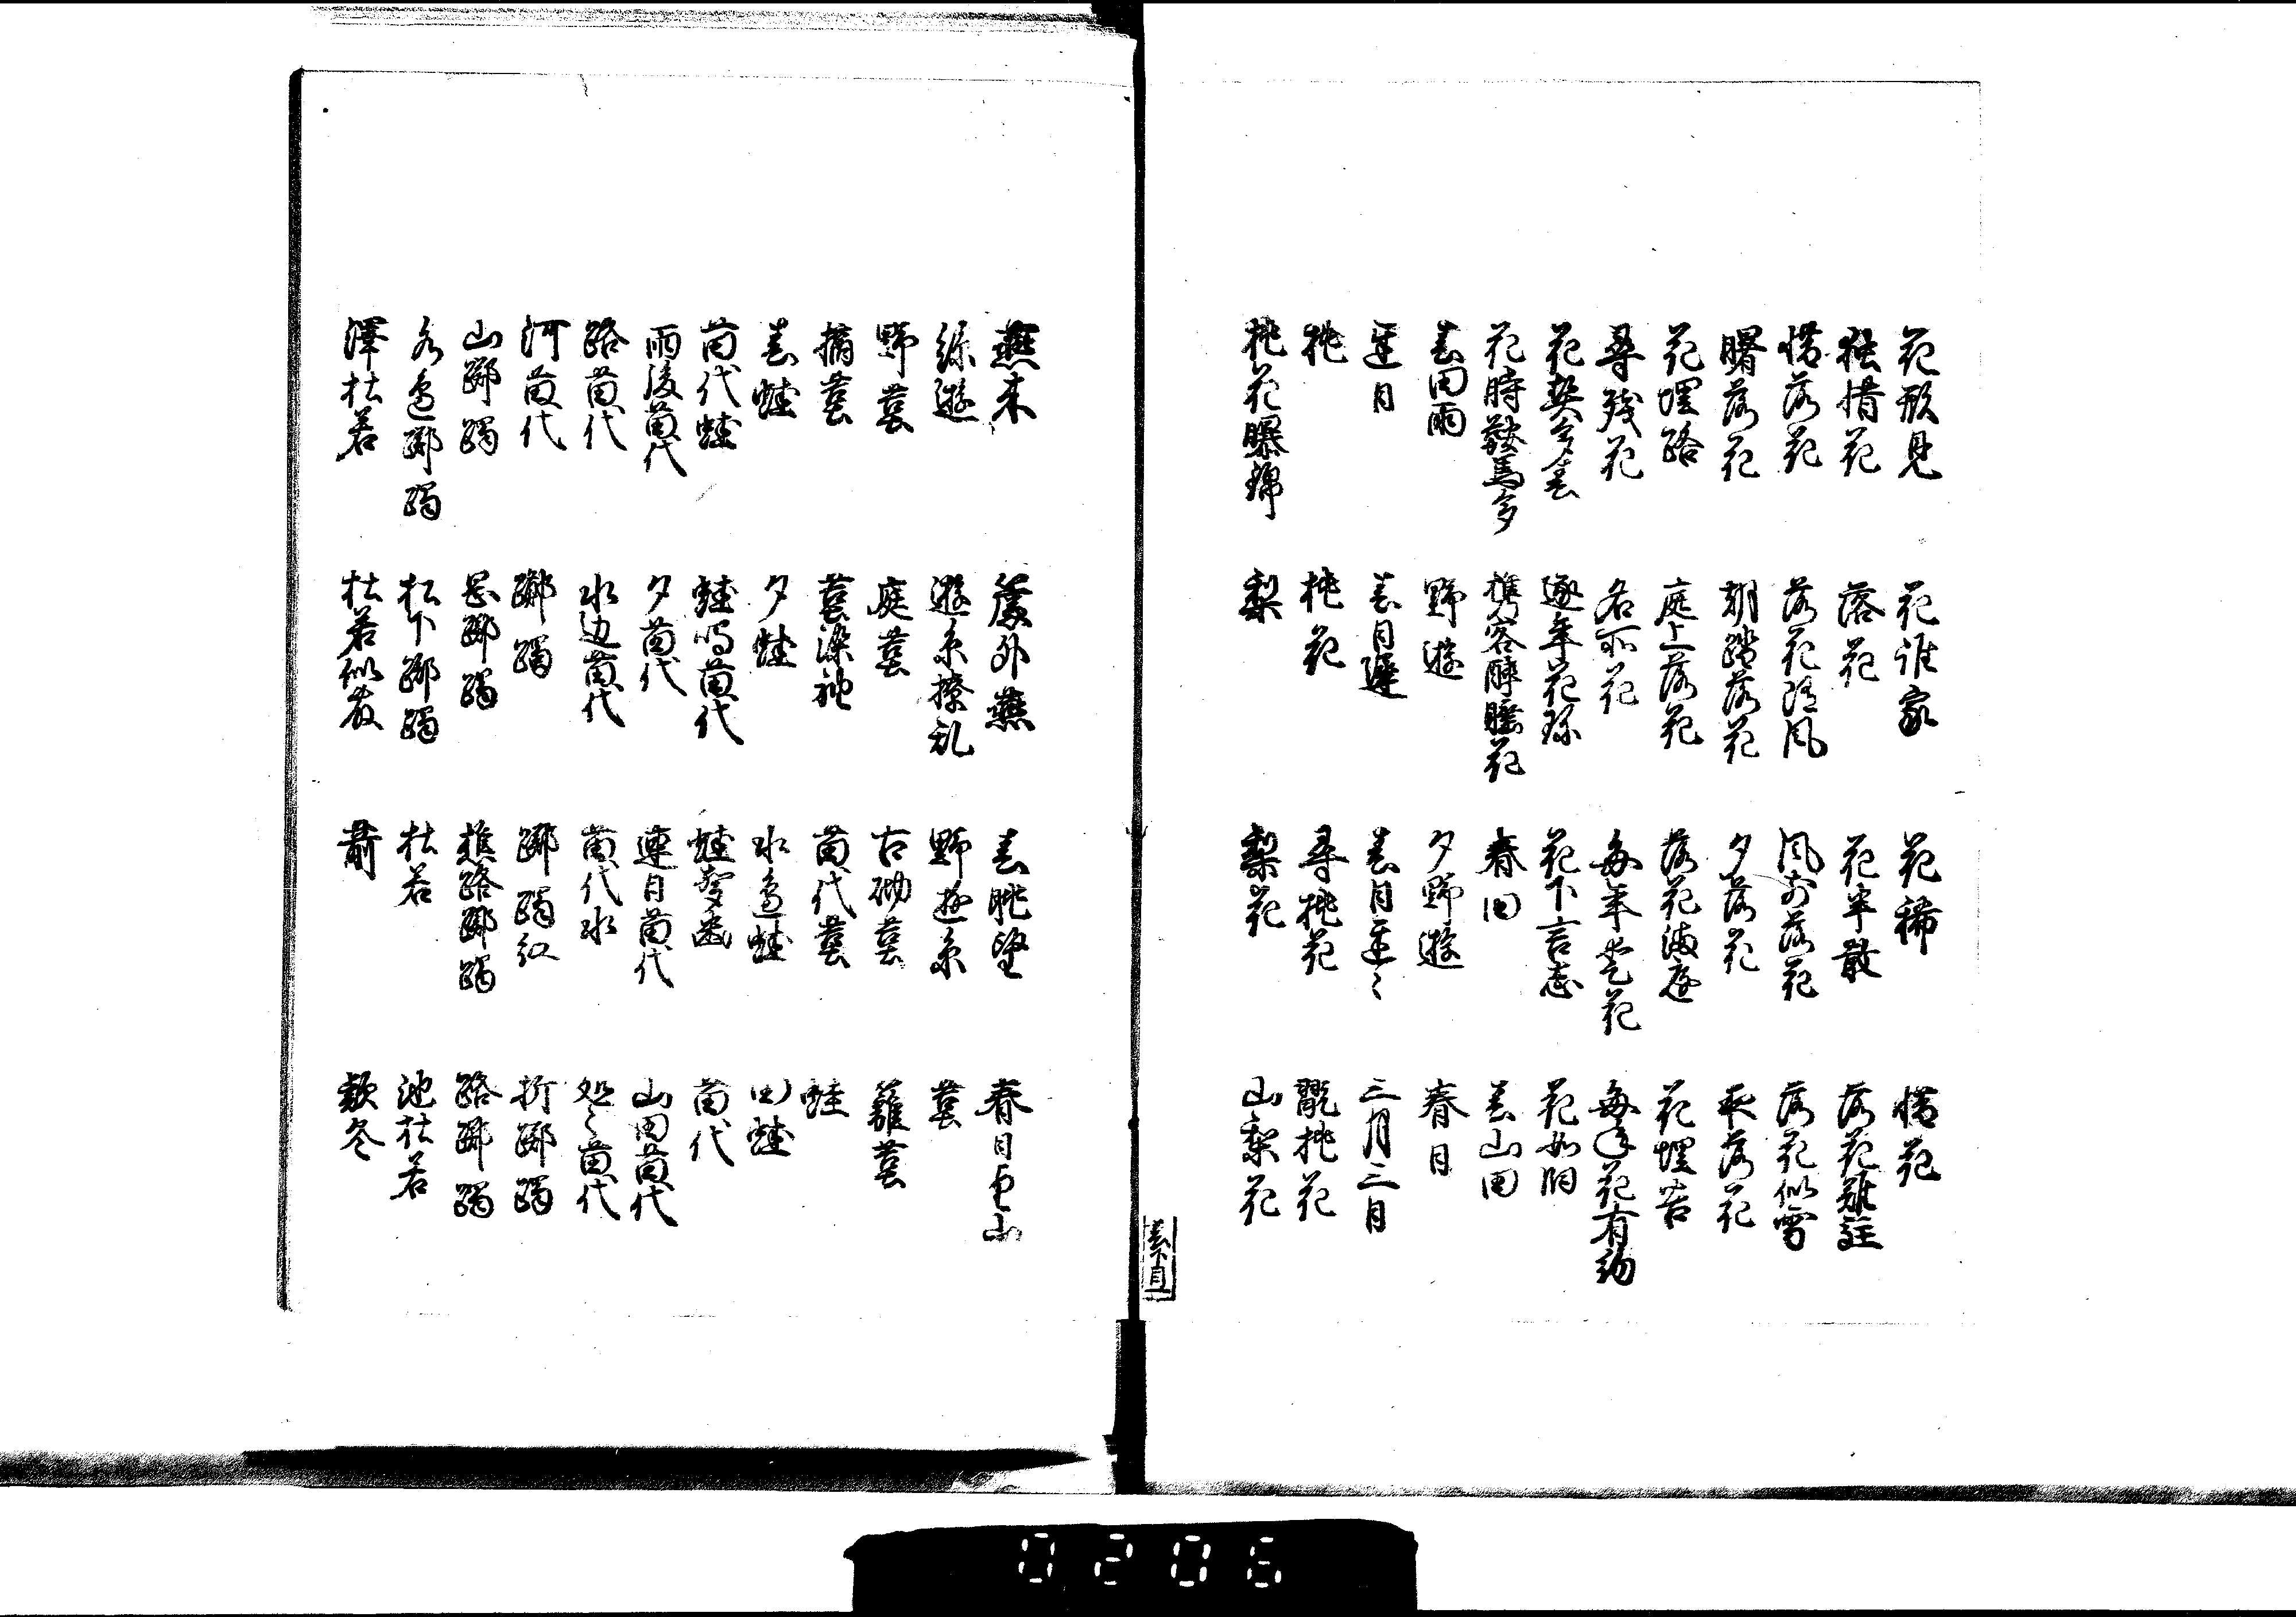 花形見 花誰家 花稀 惜花
独惜花 落花 花半散 落花難註
惜落花 落花随風 風前落花 落花似雪
曙落花 朝踏落花 夕落花 夜落花
花埋路 庭上落花 落花満庭 花埋苔
尋残花 名所花 毎年愛花 毎年花有約
花契多春 逐年花珍 花下言志 花如旧
花時鞍馬多 携客酔眠花 春田 春山田
春田雨 野遊 夕野遊 春日
遅日 春日遅 春日遅々 三月三日
桃 桃花 尋桃花 翫桃花
桃花曝錦 梨 梨花 山梨花
春下目一
燕来 簷外燕 春眺望 春日望山
絲遊 遊糸撩乱 野遊糸 菫
野菫 庭菫 古砌菫 籬菫
摘菫 菫染袖 苗代菫 蛙
春蛙 夕蛙 水辺蛙 田蛙
苗代蛙 蛙鳴苗代 蛙声幽 苗代
雨後苗代 夕苗代 連日苗代 山田苗代
路苗代 水辺苗代 苗代水 処々苗代
河苗代 躑躅 躑躅紅 折躑躅
山躑躅 岡躑躅 樵路躑躅 路躑躅
水辺躑躅 松下躑躅 杜若 池杜若
澤杜若 杜若似衣 款冬
0206